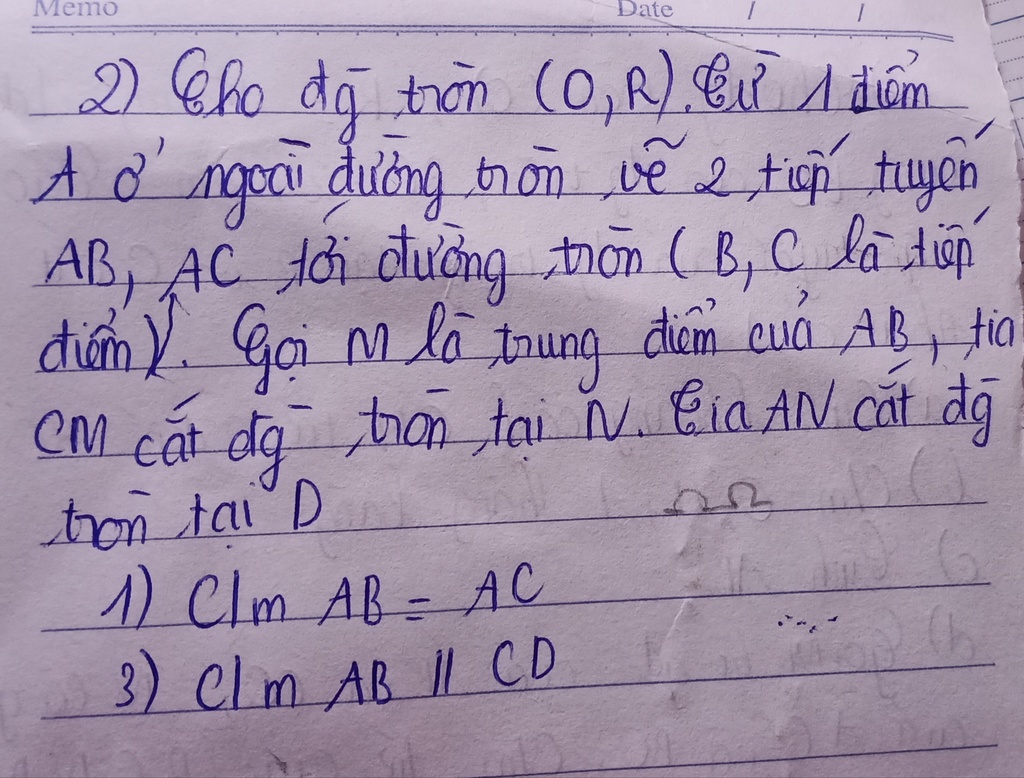 Memo Date / /
2) Cho đg tròn (O,R). Từ 1 điểm
A ở ngoài đường tròn vẽ 2 tiếp tuyến
AB, AC tới đường tròn ( B, C là tiếp
điểm). Gọi M là trung điểm của AB, tia
CM cắt đg tròn tại N. Tia AN cắt đg
tròn tại D
1) C/m AB = AC
3) C/m AB // CD